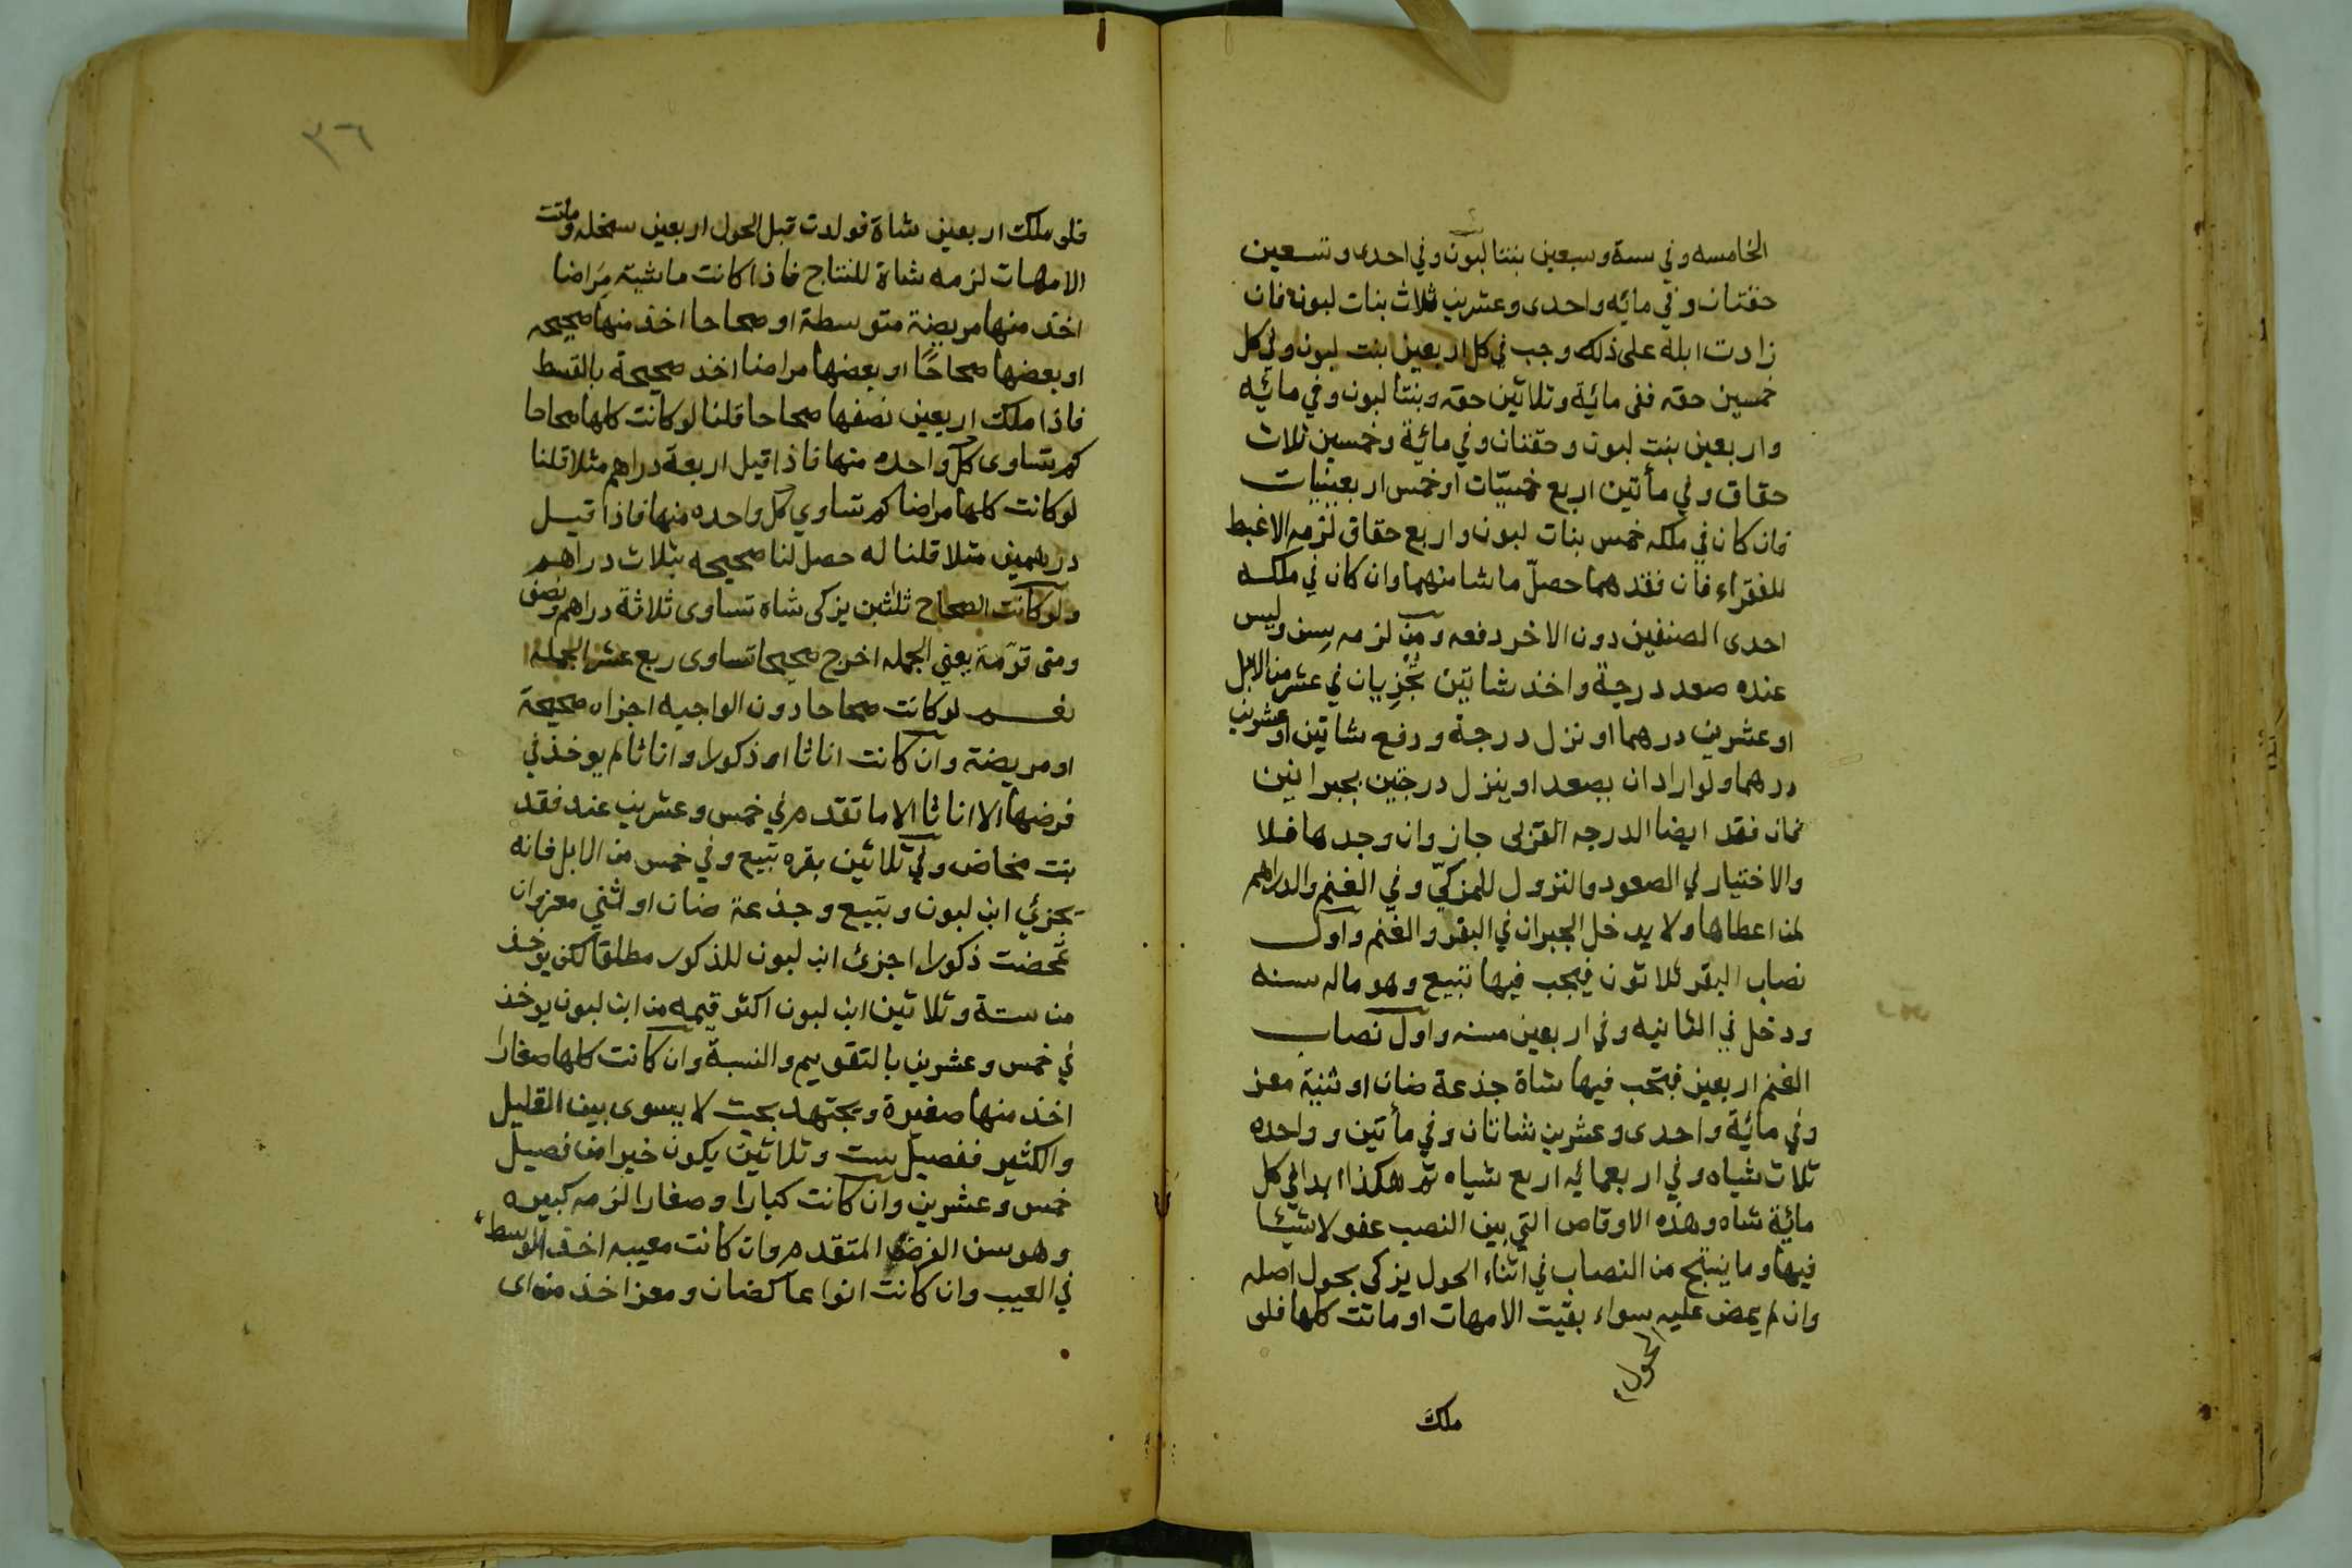 الخامسه وفي ستة وسبعين بنتا لبون وفي احدى وتسعين
حقتان وفي مائه واحدى وعشرين ثلاث بنات لبون فان
زادت ابله على ذلك وجب في كل اربعين بنت لبون وفي كل
خمسين حقه ففى مائية وثلاثين حقه وبنتا لبون وفي مائيه
واربعين بنت لبون وحقتان وفي مائية وخمسين ثلاث
حقاق وفي مأتين اربع خمسيّات او خمس اربعينيات
فان كان في ملكه خمس بنات لبون واربع حقاق لزمه الاغبط
للفقراء فان فقدهما حصلّ ما شا منهما وان كان في ملكه
احدى الصنفين دون الاخر دفعه ومن لزمه سن وليس
عنده صعد درجة واخذ شاتين تجزيان في عشر من الابل
او عشرين درهما او نزل درجة ودفع شاتين او عشرين
درهما ولو اراد ان يصعد او ينزل درجتين بجبرانين
فان فقد ايضا الدرجه القزلى جاز وان وجدها فلا
والاختيار في الصعود والنزول للمزكيّ وفي الغنم والدراهم
لمن اعطاها ولا يدخل الجبران في البقر والغنم واول
نصاب البقر ثلاثون فيجب فيها تبيع وهو ماله سنه
ودخل في الثانيه وفي اربعين مسنه واول نصاب
الغنم اربعين فتجب فيها شاة جذعة ضان او ثنية معز
وفي مائية واحدى وعشرين شاتان وفي مأتين وواحده
ثلاث شياه وفي اربعمائيه اربع شياه ثم هكذا ابدا في كل
مائية شاه وهذه الاوقاص التي بين النصب عفو لا شيئا
فيها وما ينتج من النصاب في اثناء الحول يزكى بحول اصله
وان لم يمض عليه سواء بقيت الامهات او ماتت كلها فلو
الحول
ملك
٣٦
فلو ملك اربعين شاة فولدت قبل الحول اربعين سخله وماتت
الامهات لزمه شاة للنتاج فاذا كانت ماشيته مَراضا
اخذ منها مريضة متوسطة او صحاحا اخذ منها صحيحه
او بعضها صحاحًا او بعضها مراضا اخذ صحيحة بالقسط
فاذا ملك اربعين نصفها صحاحا قلنا لو كانت كلها صحاحا
كم تساوى كل واحده منها فاذا قيل اربعة دراهم مثلا قلنا
لو كانت كلها مراضا كم تساوي كل واحده منها فاذا قيل
درهمين مثلا قلنا له حصل لنا صحيحه بثلاث دراهم
ولو كانت الصحاح ثلثين يزكى شاه تساوى ثلاثة دراهم ونصف
ومتى قوّمة يعني الجمله اخرج صحيحا تساوى ربع عشر الجمله
نعم لو كانت صحاحا دون الواجبه اجزاه صحيحة
او مريضة وان كانت اناثا او ذكورا واناثا لم يوخذ في
فرضها الا اناثا الا ما تقدم في خمس وعشرين عند فقد
بنت مخاض وفي ثلاثين بقره تبيع وفي خمس من الابل فانه
يجزئي ابن لبون وتبيع وجذعة ضان او اثني معز وان
تمحضت ذكورا اجزئ ابن لبون للذكور مطلقا لكن يوخذ
من ستة وثلاثين ابن لبون اكثر قيمه من ابن لبون يوخذ
في خمس وعشرين بالتقويم والنسبة وان كانت كلها صغارا
اخذ منها صغيرة ويجتهد بحيث لا يسوى بين القليل
والكثير ففصيل ست وثلاثين يكون خيرا من فصيل
خمس وعشرين وان كانت كبارا وصغارا لزمه كبيره
وهو سن الفرض المتقدم وان كانت معيبه اخذ الوسط
في العيب وان كانت انواعا كضان ومعز اخذ من اى